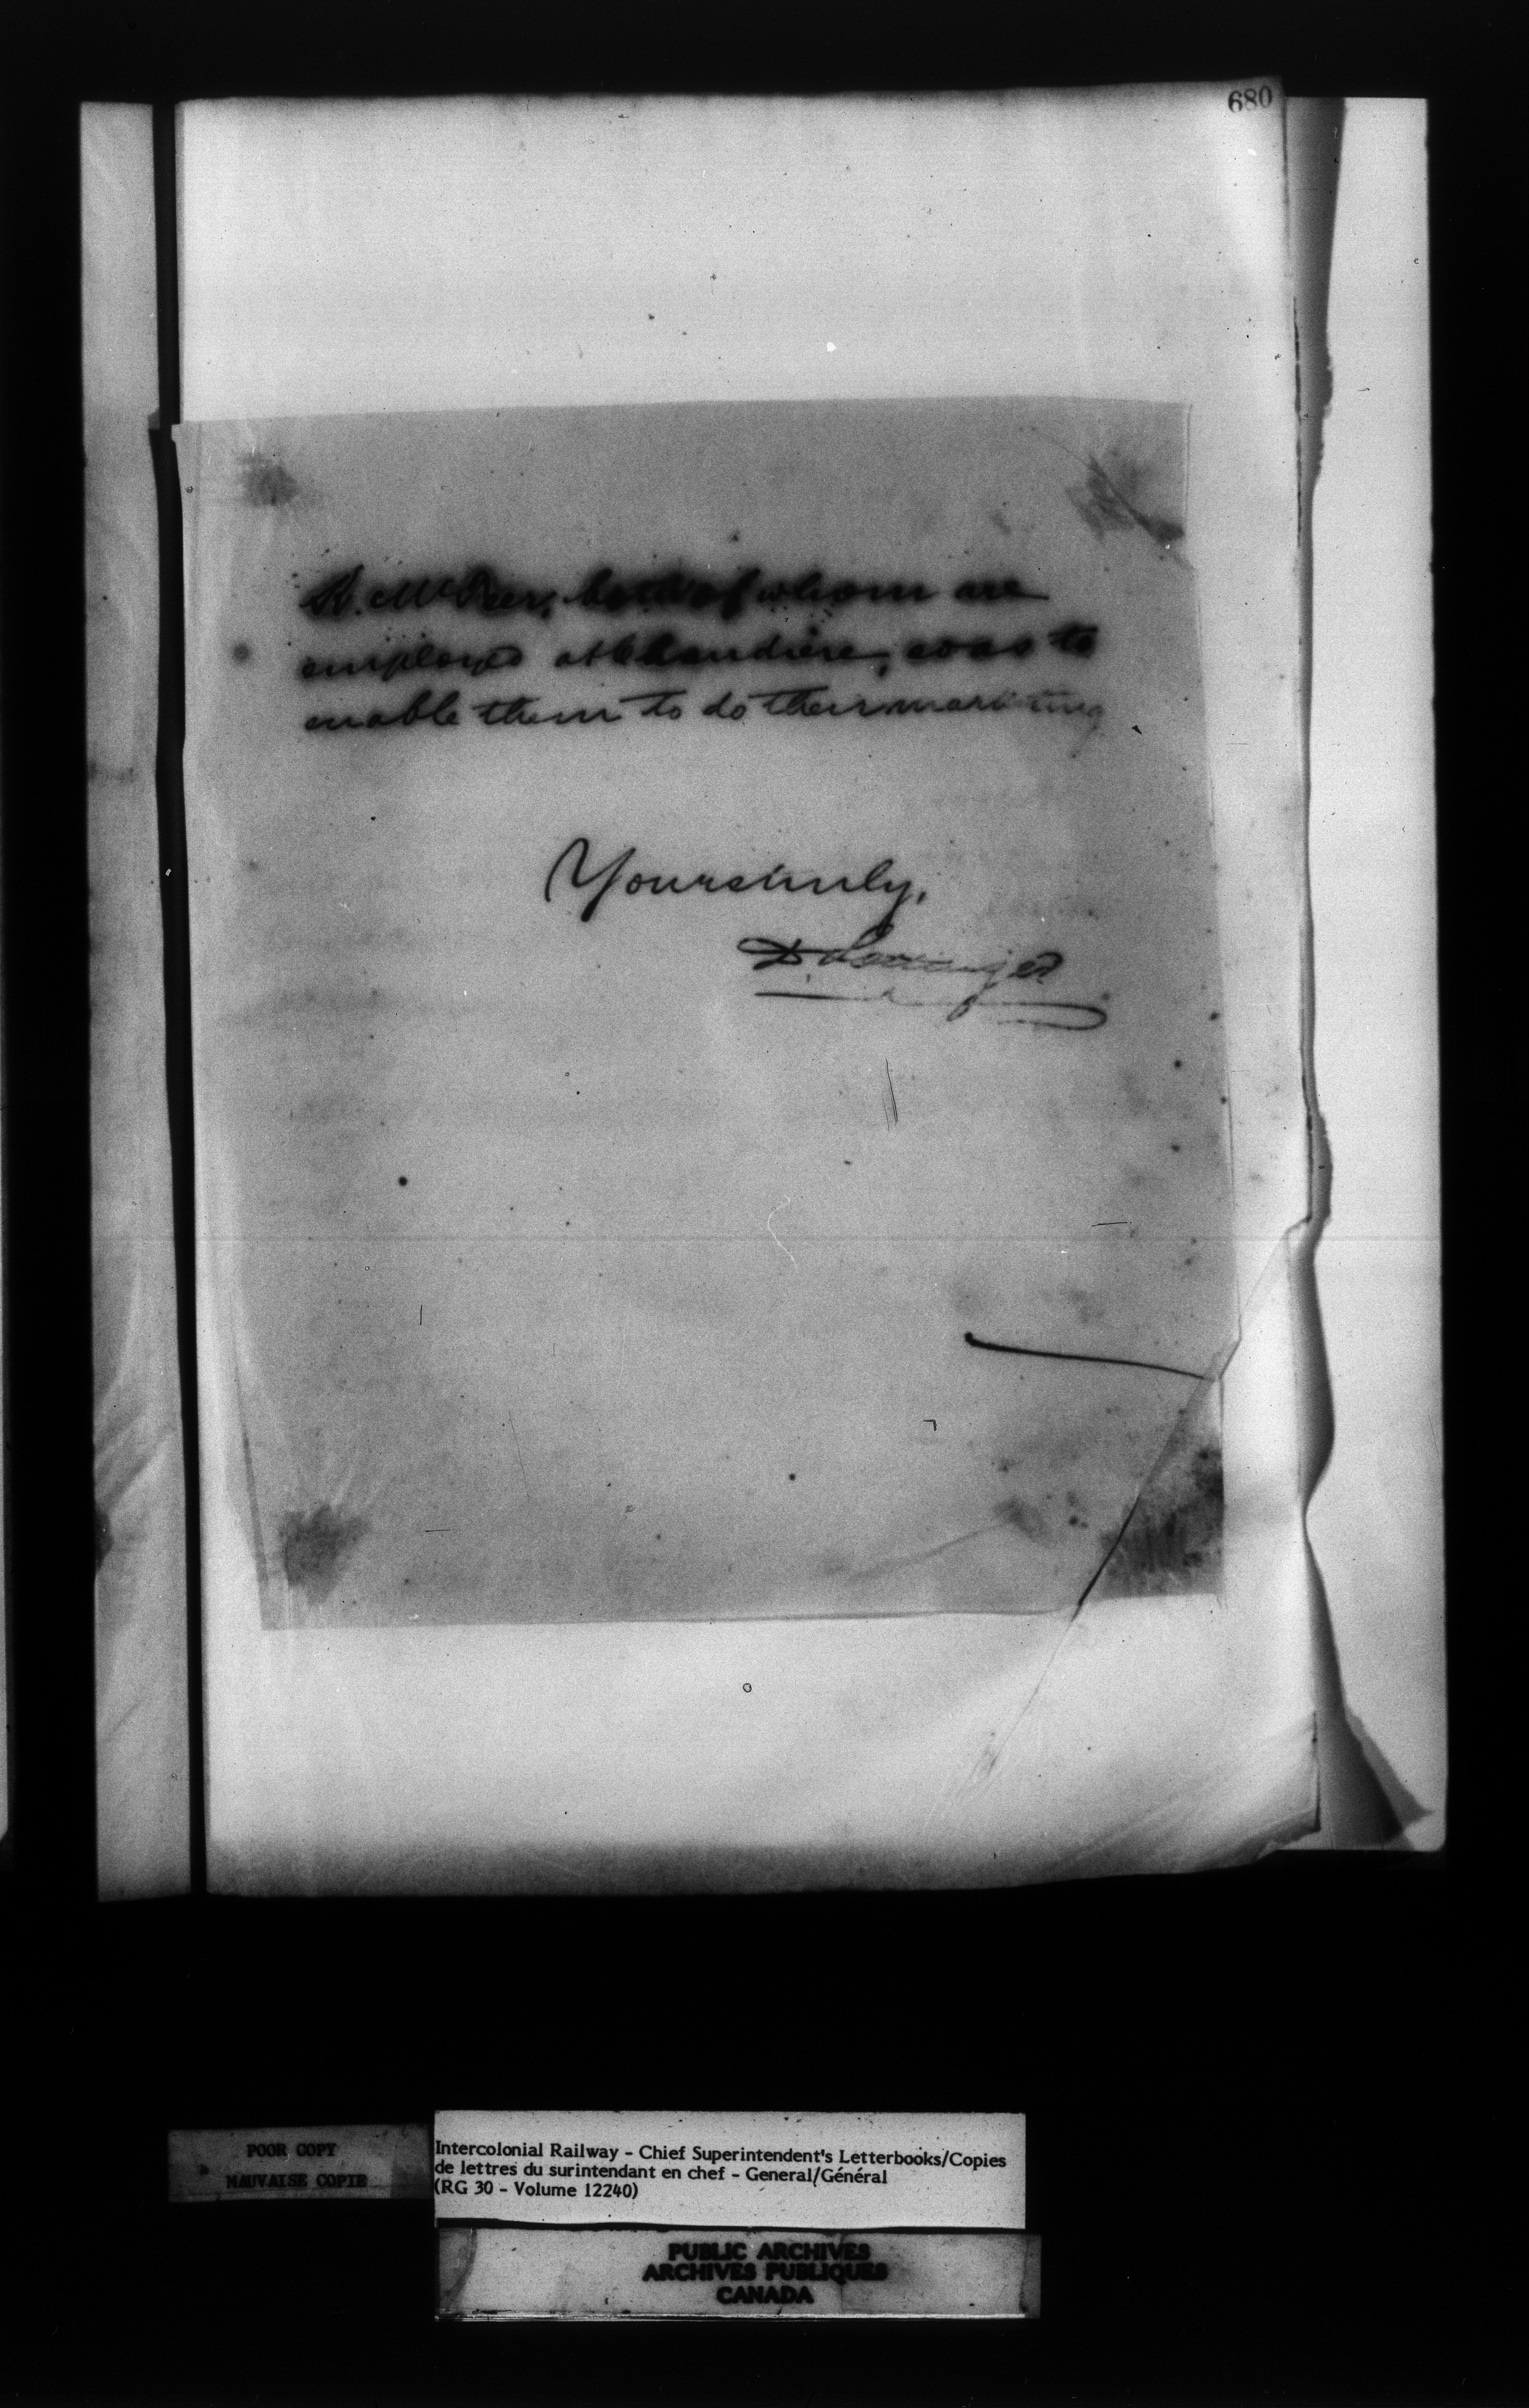 680
both of whom are
employed at Chaudiere, was to
enable them to do their marketing
Yours truly,
POOR COPY
MAUVAISE COPIE
Intercolonial Railway - Chief Superintendent's Letterbooks/Copies
de lettres du surintendant en chef - General/Général
(RG 30 - Volume 12240)
PUBLIC ARCHIVES
ARCHIVES PUBLIQUES
CANADA